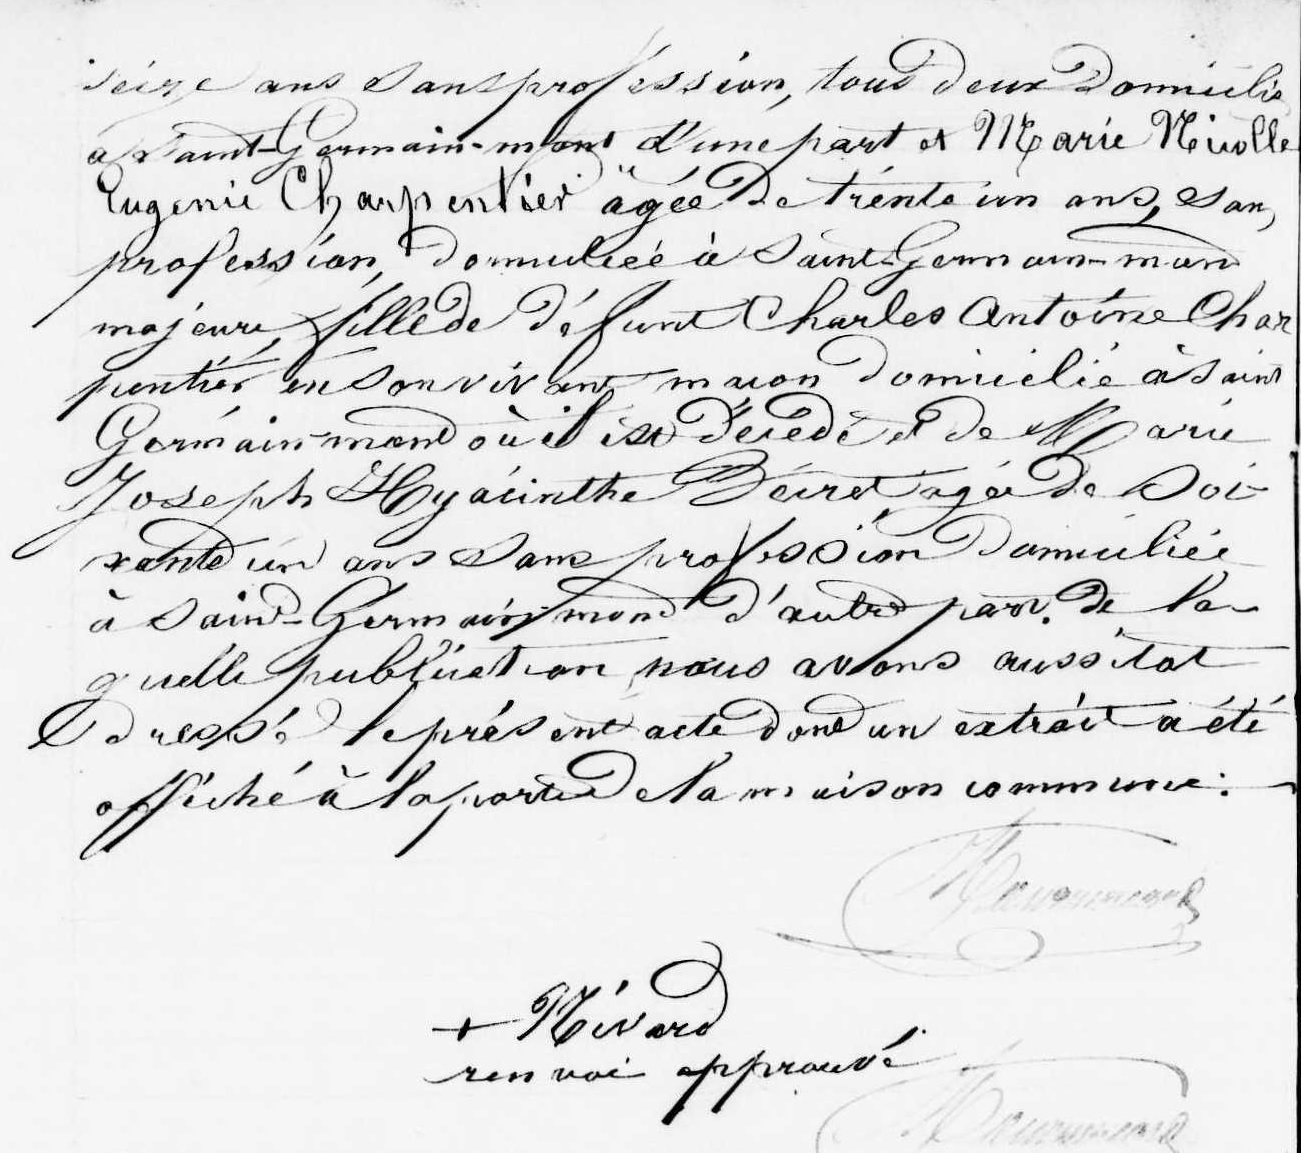 seize ans sans profession, tous deux domicilés
à Saint-Germain-mont d'une part et Marie Nicolle
Eugenie Charpentier agée de trente un ans, sans
profession, domiciliée à Saint-Germain-mont
majeure, fille de défunt Charles Antoine Char
pentier en son vivant maçon domicilié à Saint
Germain-mont où il est décédé et de Marie
Joseph Hyacinthe agée de Soi-
xante un ans sans profession domiciliée
à Saint-Germain-mont d'autre part. de la-
quelle publication nous avons aussitot
dressé le présent acte dont un extrait a été
affiché à la porte de la maison commune.
+ Nivard
renvoi approuvé